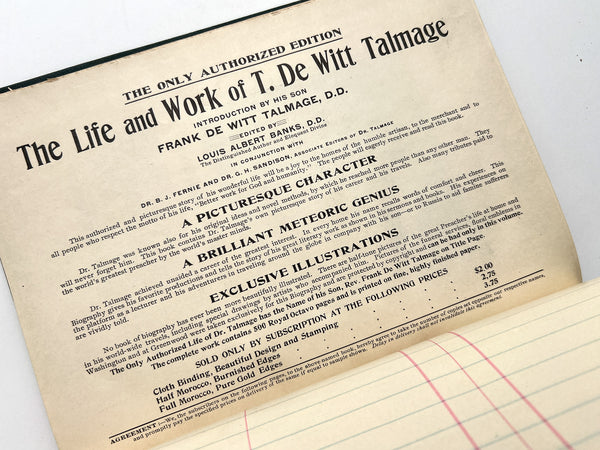 THE ONLY AUTHORIZED EDITION
The Life and Work of T. De Witt Talmage
INTRODUCTION BY HIS SON
FRANK DE WITT TALMAGE, D.D.
EDITED BY
LOUIS ALBERT BANKS, D.D.
The Distinguished Author and Eloquent Divine
IN CONJUNCTION WITH
DR. B. J. FERNIE AND DR. G. H. SANDISON, ASSOCIATE EDITORS OF DR. TALMAGE
This authorized and picturesque story of his wonderful life will be a joy to the homes of the humble artisan, to the merchant and to
all people who respect the motto of his life, "Better work for God and humanity." The people will eagerly receive and read this book.
A PICTURESQUE CHARACTER
Dr. Talmage was known also for his original ideas and novel methods, by which he reached more people than any other man. They
will never forget him. This book contains Dr. Talmage's own picturesque story of his career and his travels. Also many tributes paid to
the world's greatest preacher by the world's master minds.
A BRILLIANT METEORIC GENIUS
Dr. Talmage achieved unaided a career of the greatest interest. In every home his name recalls words of comfort and cheer. This
Biography gives his favorite productions and tells the story of his great literary work as shown in his sermons and books. His experiences on
the platform as a lecturer and his adventures in traveling around the globe in company with his son—or to Russia to aid famine sufferers
are vividly told.
EXCLUSIVE ILLUSTRATIONS
No book of biography has ever been more beautifully illustrated. There are half-tone pictures of the great Preacher's life at home and
in his world-wide travels, including special drawings by artists who accompanied him. Pictures of the funeral services, floral emblems in
Washington and at Greenwood were taken exclusively for this Biography and are protected by copyright and can be had only in this volume.
The Only Authorized Life of Dr. Talmage has the Name of his Son, Rev. Frank De Witt Talmage on Title Page.
The complete work contains 500 Royal Octavo pages and is printed on fine, highly finished paper.
SOLD ONLY BY SUBSCRIPTION AT THE FOLLOWING PRICES
Cloth Binding, Beautiful Design and Stamping $2.00
Half Morocco, Burnished Edges 2.75
Full Morocco, Pure Gold Edges 3.75
AGREEMENT:—We, the subscribers on the following pages, to the above named book, hereby agree to take the number of copies set opposite our respective names,
and promptly pay the specified prices on delivery of the same if equal to sample shown. Delays in delivery shall not invalidate this agreement